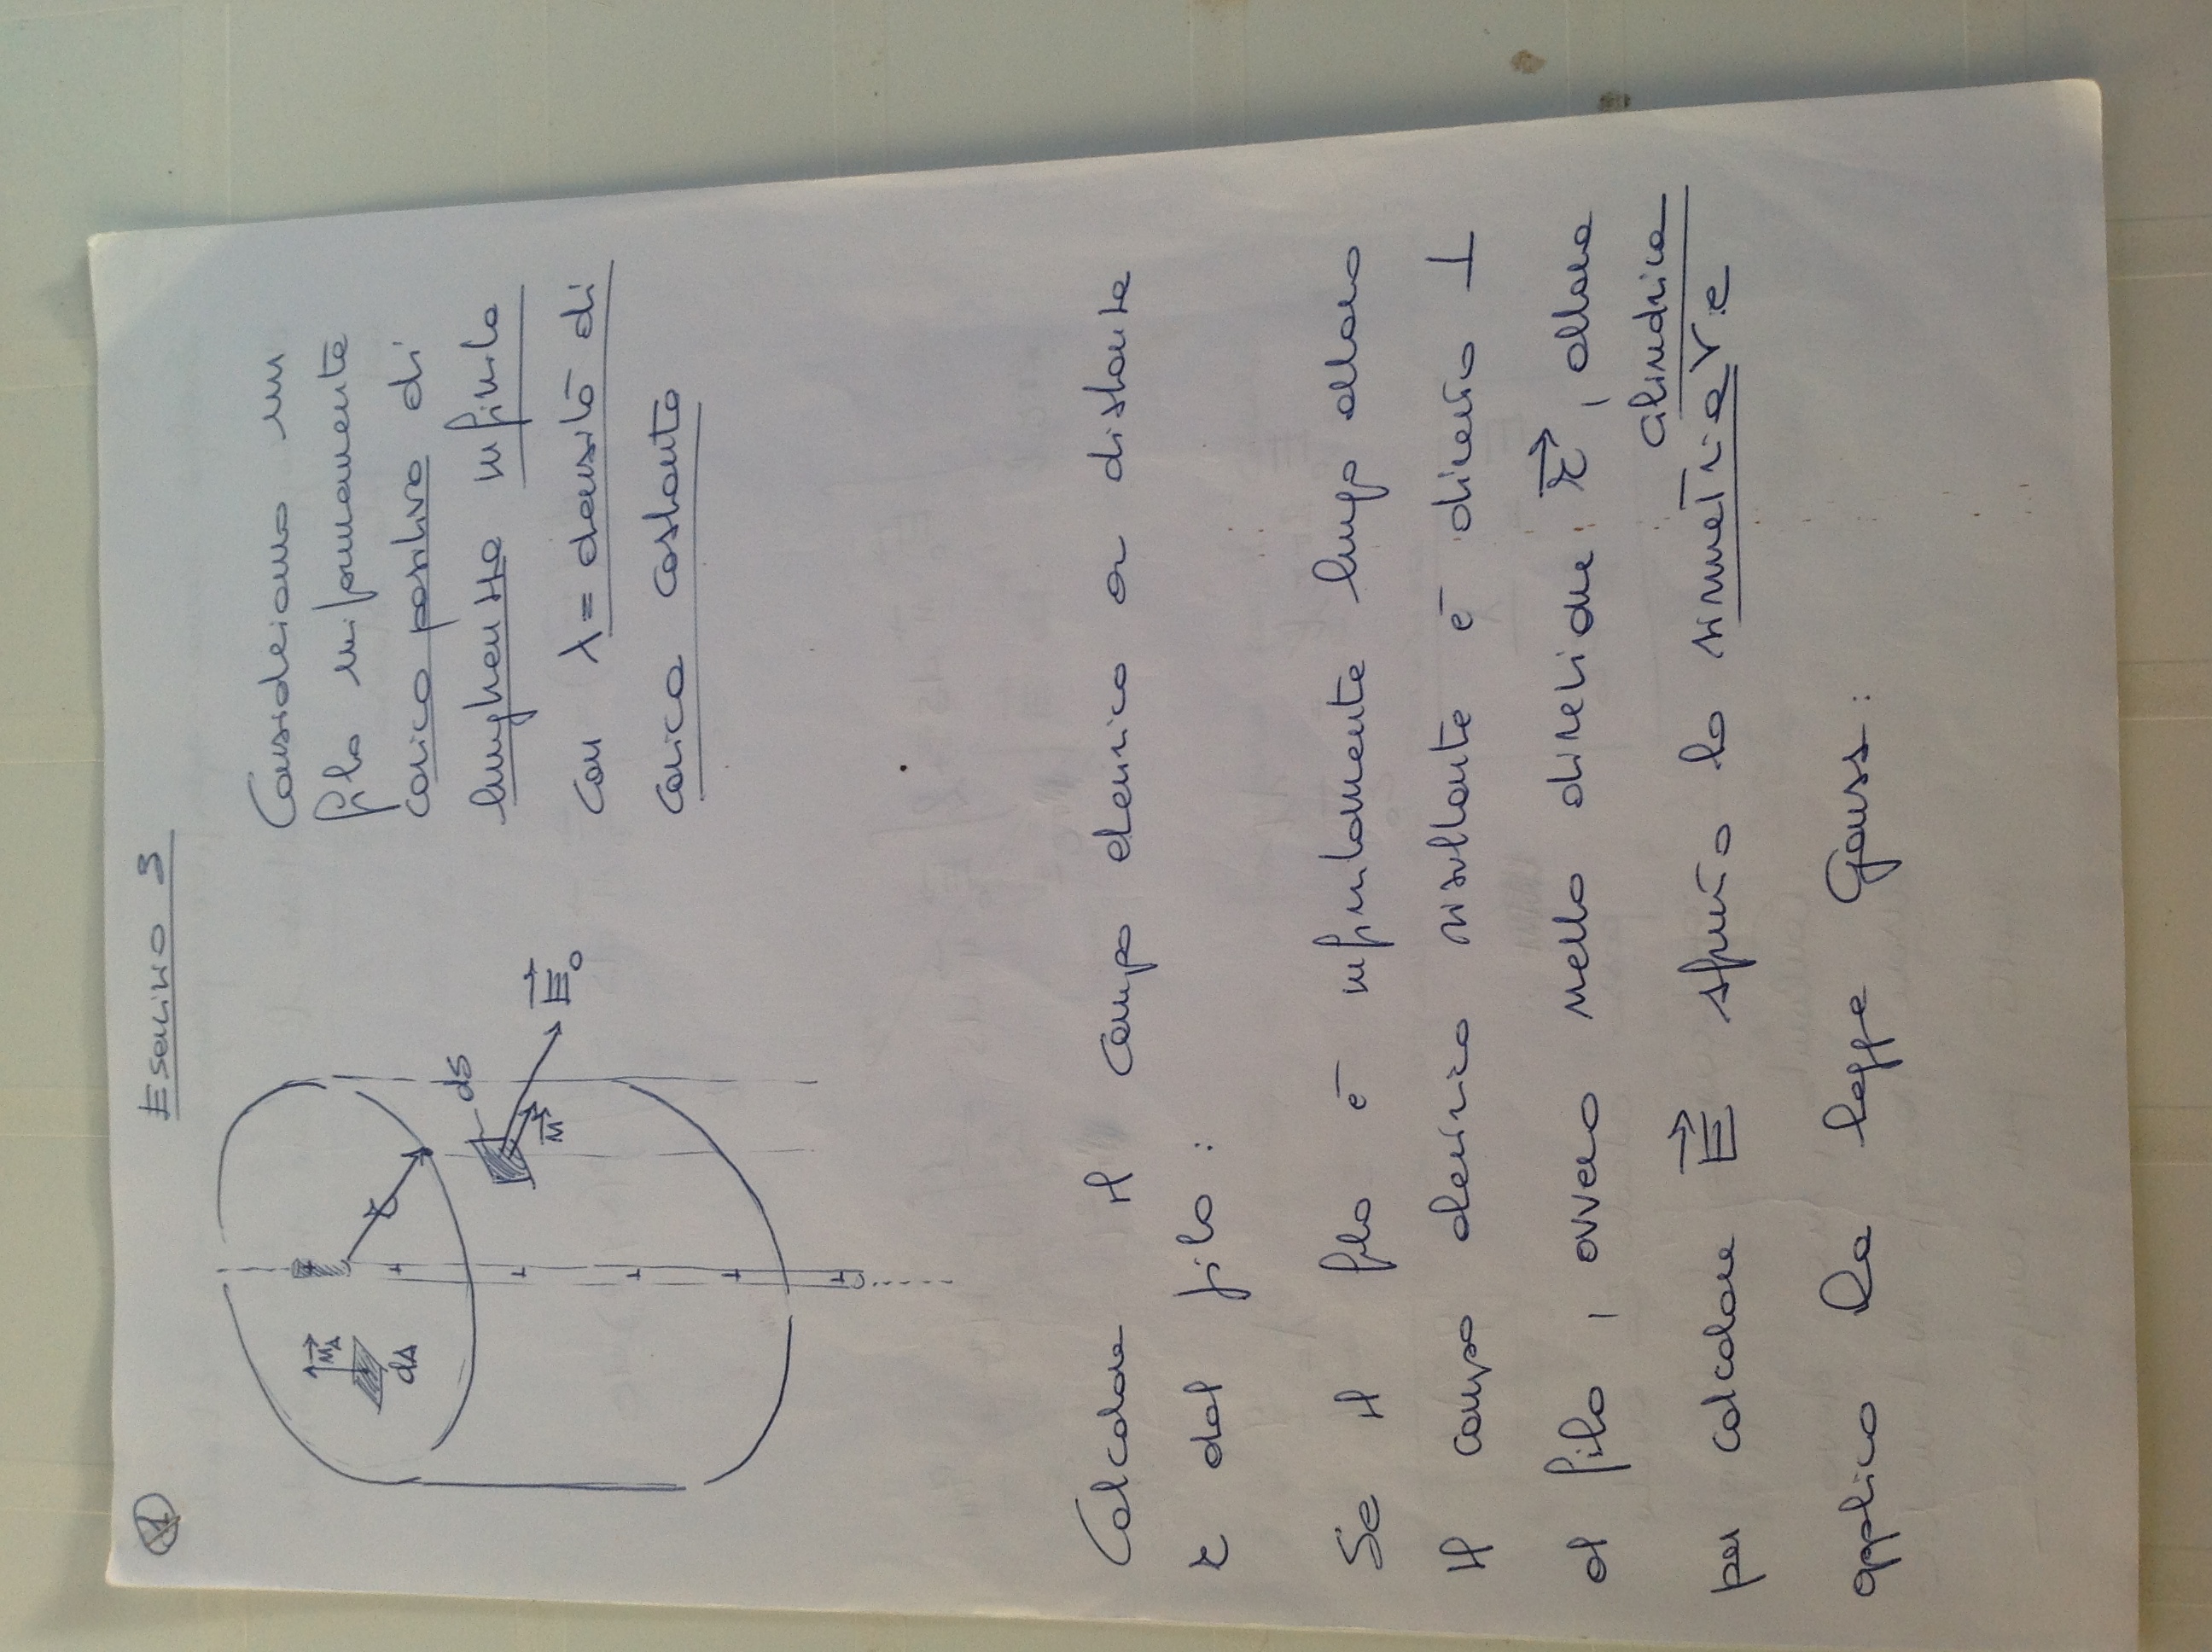 1
Esercizio 3
Consideriamo un
filo uniformemente
carico positivo di
lunghezza infinita
con λ = densità di
carica costante
n_A
dA
r
dS
n
E₀
+
+
+
+
+
+
Calcolare il campo elettrico a distanza
r dal filo :
Se il filo è infinitamente lungo allora
il campo elettrico risultante è diretto ⊥
al filo , ovvero nella direzione r⃗, allora
cilindrica
per calcolare E⃗ sfrutto la simmetria e
applico la legge Gauss :